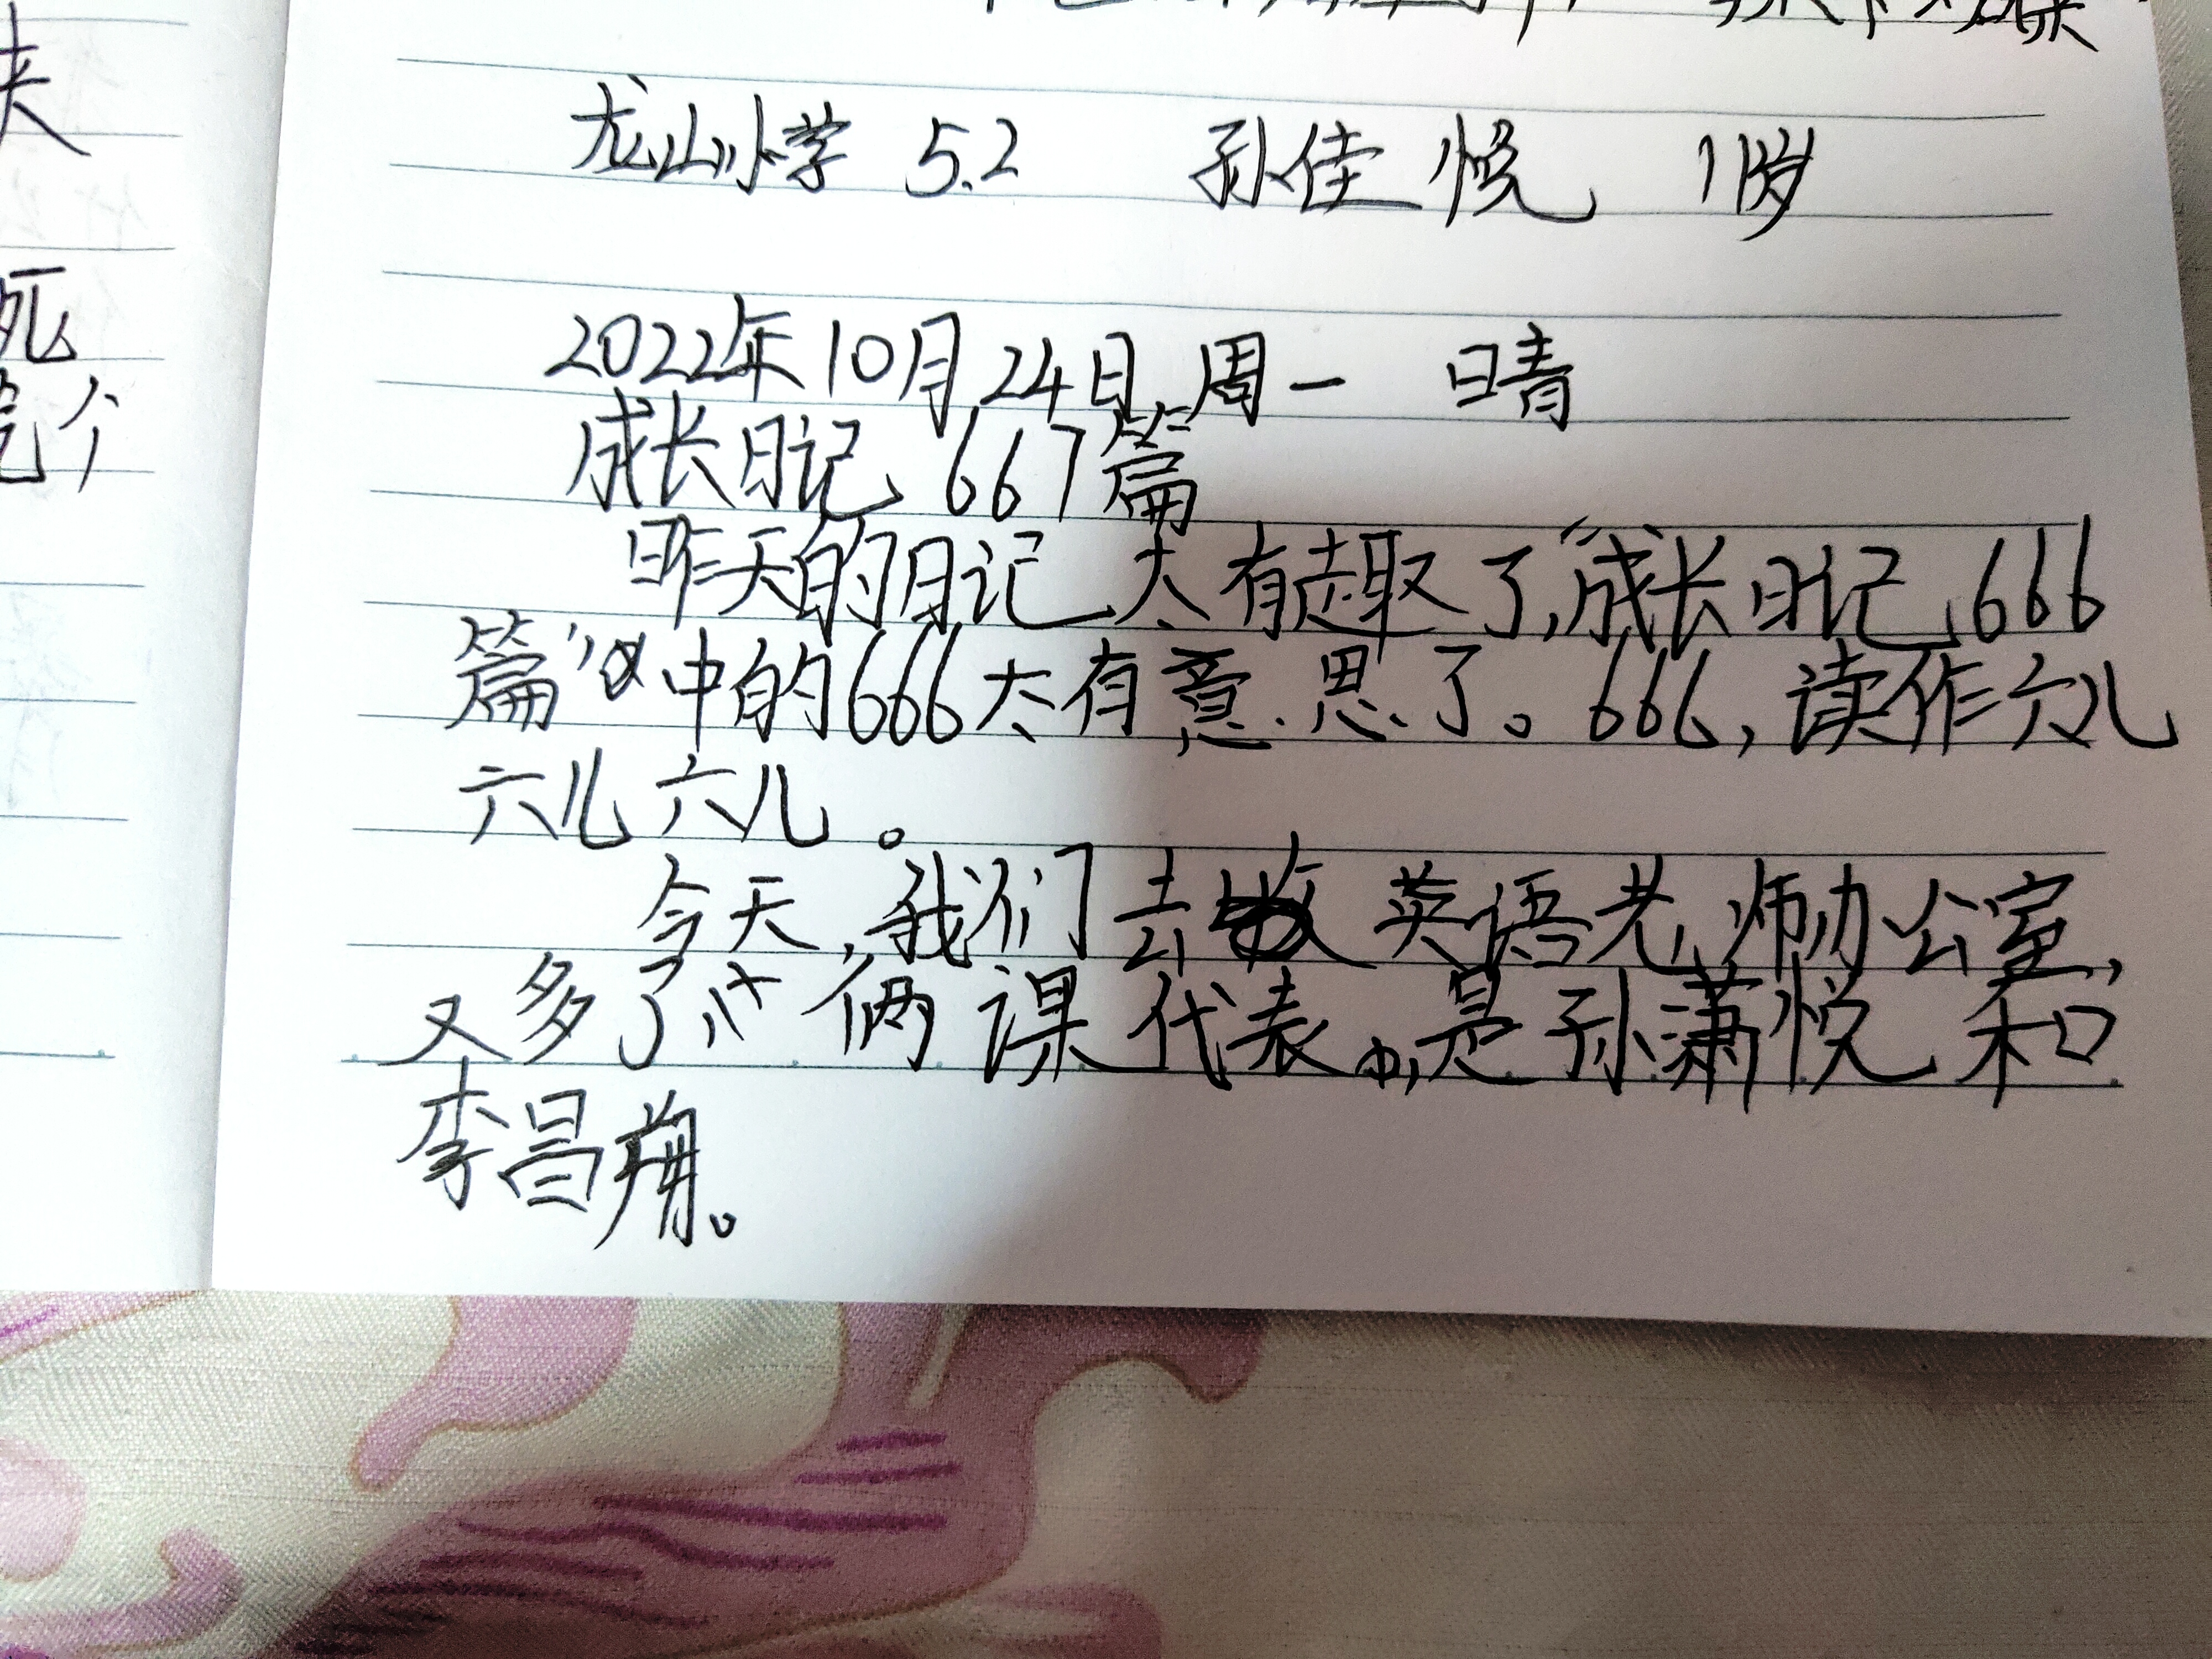 夹
死
个
龙山小学 5.2 孙佳悦 11岁
2022年10月24日 周一 晴
成长日记 667篇
昨天的日记太有趣了,“成长日记 666
篇”中的666太有意思了。666,读作六儿
六儿六儿。
今天,我们去 英语老师办公室,
又多了 俩课代表。是孙潇悦和
李昌翔。